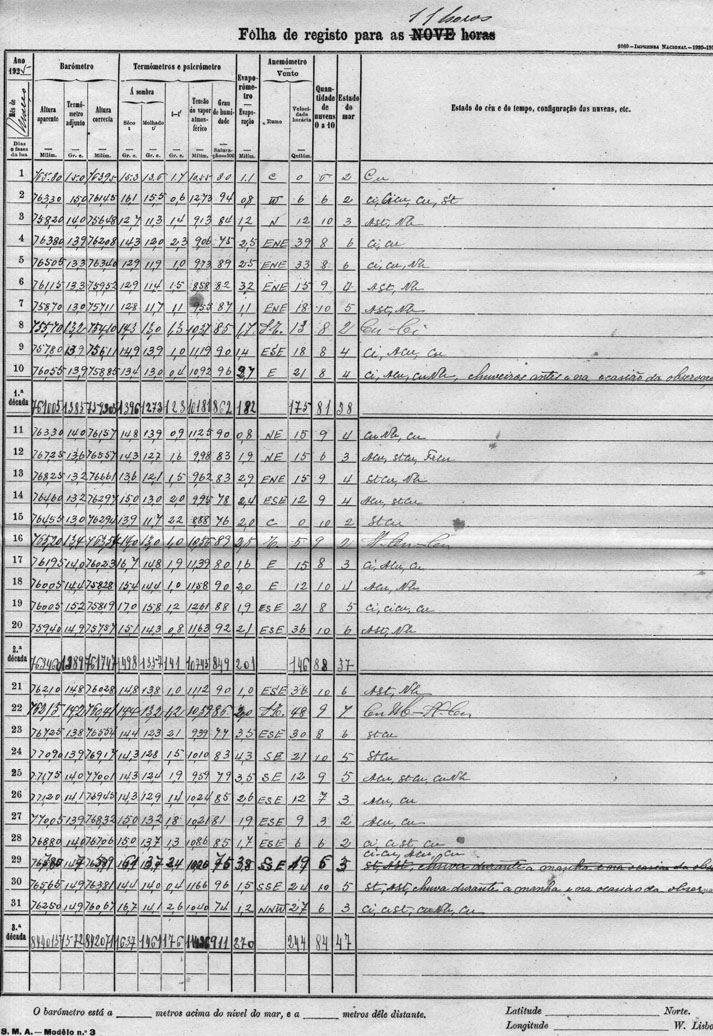 11 horas
Fôlha de registo para as NOVE horas
2069—IMPRENSA NACIONAL—1920-19
Ano 192 Barómetro Termómetros e psicrómetro Evaporómetro — Evaporação Anemómetro — Vento Quantidade de nuvens 0 a 10 Estado do mar Estado do céu e do tempo, configuração das nuvens, etc.
Mês de Março Altura aparente Termómetro adjunto Altura correcta Á sombra Tensão do vapor atmosférico Grau de humidade Rumo Velocidade horária
Sêco t Molhado t' t-t'
Dias e fases da lua Milím. Gr. c. Milím. Gr. c. Gr. c. Gr. c. Milím. Milím. Quilóm.
1 15,3 13,6 1,7 80 1,1 C 0 2 Cu
2 76330 15,0 76145 16,1 15,5 0,6 1273 94 0,8 W 6 6 2
3 75820 14,0 75648 12,7 11,3 1,4 913 84 1,2 N 12 10 3 Ast, Nb
4 76380 13,9 76208 14,3 12,0 2,3 906 75 2,5 ENE 39 8 6 ci, cu
5 76505 13,3 76340 12,9 11,9 1,0 973 89 2,5 ENE 33 8 6 ci, cu, Nb
6 76115 13,3 75952 12,9 11,4 1,5 858 82 3,2 ENE 15 9 4 Ast, Nb
7 75870 13,0 75711 12,8 11,7 1,1 955 87 1,1 ENE 18 10 5 Ast, Nb
8 75570 13,2 75410 14,3 13,0 1,3 1037 85 1,7 13 8 2 Cu - Ci
9 75780 13,9 75611 14,9 13,9 1,0 1119 90 1,4 ESE 18 8 4 Ci, Acu, Cu
10 76055 13,9 75885 13,4 13,0 0,4 1092 96 2,7 E 21 8 4 Ci, Acu, cuNb, chuveiros antes e na ocasião da observaç
1.ª década 761005 1385 1396 1273 123 862 182 175 81 38
11 76330 14,0 76157 14,8 13,9 0,9 1125 90 0,8 NE 15 9 4 cuNb, cu
12 76725 13,6 76557 14,3 12,7 1,6 998 83 1,9 NE 15 6 3 Acu, stcu, Frcu
13 76825 13,2 76661 13,6 12,1 1,5 962 83 2,9 ENE 15 9 4 Stcu, Nb
14 76460 13,2 76297 15,0 13,0 2,0 995 78 2,4 ESE 12 9 4 Acu, stcu
15 76455 13,0 76294 13,9 11,7 2,2 888 76 2,0 C 0 10 2 Stcu
16 76520 13,4 14,0 13,0 1,0 1056 89 2,5 5 9 2
17 76195 14,0 76023 16,7 14,8 1,9 1139 80 1,6 E 15 8 3 ci, Acu, cu
18 76005 14,4 75828 15,4 14,4 1,0 1158 90 2,0 E 12 10 4 Acu, Nb
19 76005 15,2 75819 17,0 15,8 1,2 1261 88 1,9 ESE 21 8 5 ci, cicu, cu
20 75940 14,9 75757 15,1 14,3 0,8 1163 92 2,1 ESE 36 10 6 Ast, Nb
2.ª década 763460 1389 761747 1498 1357 141 10745 849 201 146 88 37
21 76210 14,8 76028 14,8 13,8 1,0 1112 90 1,0 ESE 36 10 6 Ast, Nb
22 76215 14,2 76041 14,4 13,2 1,2 1059 86 3,0 48 9 7
23 76725 13,8 76554 14,4 12,3 2,1 939 77 3,5 ESE 30 8 6 stcu
24 77090 13,9 76917 14,3 12,8 1,5 1010 83 4,3 SE 21 10 5 Stcu
25 77175 14,0 77001 14,3 12,4 1,9 959 79 3,5 SE 12 9 5 Acu, stcu, cuNb
26 77120 14,1 76945 14,3 12,9 1,4 1024 85 2,6 ESE 12 7 3 Acu, cu
27 77005 13,9 76832 15,0 13,2 1,8 1021 81 1,9 ESE 9 3 2 Acu, cu
28 76880 14,0 76706 15,0 13,7 1,3 1086 85 1,7 ESE 6 6 2 ci, cist, cu
ci-cu, Acu, cu
29 76785 14,7 16,1 13,7 2,4 1026 75 3,8 SSE 19 6 3 st, Ast, chuva durante a manhã e na ocasião da obs
30 76565 14,9 76381 14,4 14,0 0,4 1166 96 1,5 SSE 24 10 5 st, Ast, chuva durante a manhã e na ocasião da observ
31 76250 14,9 76067 16,7 14,1 2,6 1040 74 1,2 NNW 27 6 3 ci, cist, cuNb, cu
3.ª década 844015 1572 842071 1637 1461 176 911 270 244 84 47
O barómetro está a ______ metros acima do nivel do mar, e a ______ metros dêle distante.
Latitude ______ Norte.
Longitude ______ W. Lisb
S. M. A.—Modêlo n.º 3